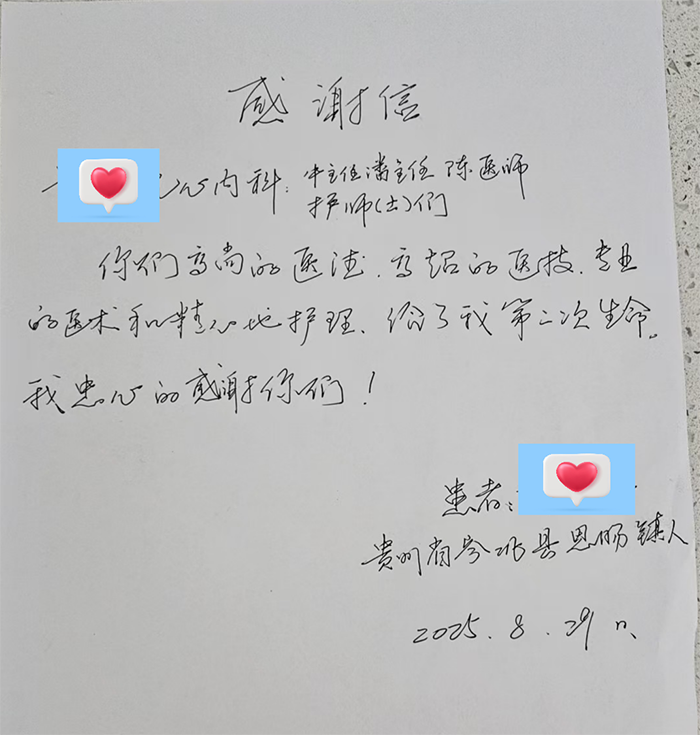 感谢信
心内科:牛主任潘主任 陈医师
护师(士)们
你们高尚的医德、高超的医技、专业
的医术和精心地护理、给了我第二次生命。
我忠心的感谢你们!
患者:
贵州省岑巩县思旸镇人
2025.8.29日